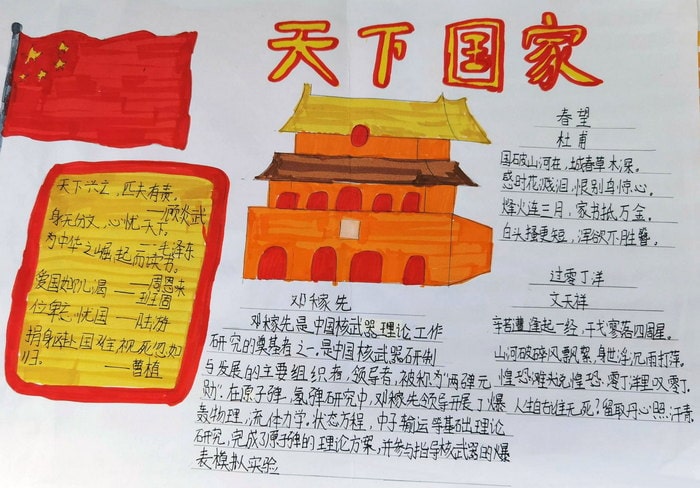 天下国家
天下兴亡，匹夫有责。
——顾炎武
身无分文，心忧天下。
——毛泽东
为中华之崛起而读书。
——周恩来
爱国如饥渴
——班固
位卑未 忧国 ——陆游
捐躯赴国难,视死忽如
归。 ——曹植
邓稼先
邓稼先是中国核武器理论工作
研究的奠基者之一.是中国核武器研制
与发展的主要组织者,领导者,被称为"两弹元
勋".在原子弹,氢弹研究中,邓稼先领导开展了爆
轰物理,流体力学,状态方程,中子输运等基础理论
研究,完成了原子弹的理论方案,并参与指导核武器的爆
轰模拟实验
春望
杜甫
国破山河在,城春草木深。
感时花溅泪,恨别鸟惊心。
烽火连三月,家书抵万金。
白头搔更短,浑欲不胜簪。
过零丁洋
文天祥
辛苦遭逢起一经,干戈寥落四周星。
山河破碎风飘絮,身世浮沉雨打萍。
惶恐滩头说惶恐,零丁洋里叹零丁.
人生自古谁无死?留取丹心照汗青.